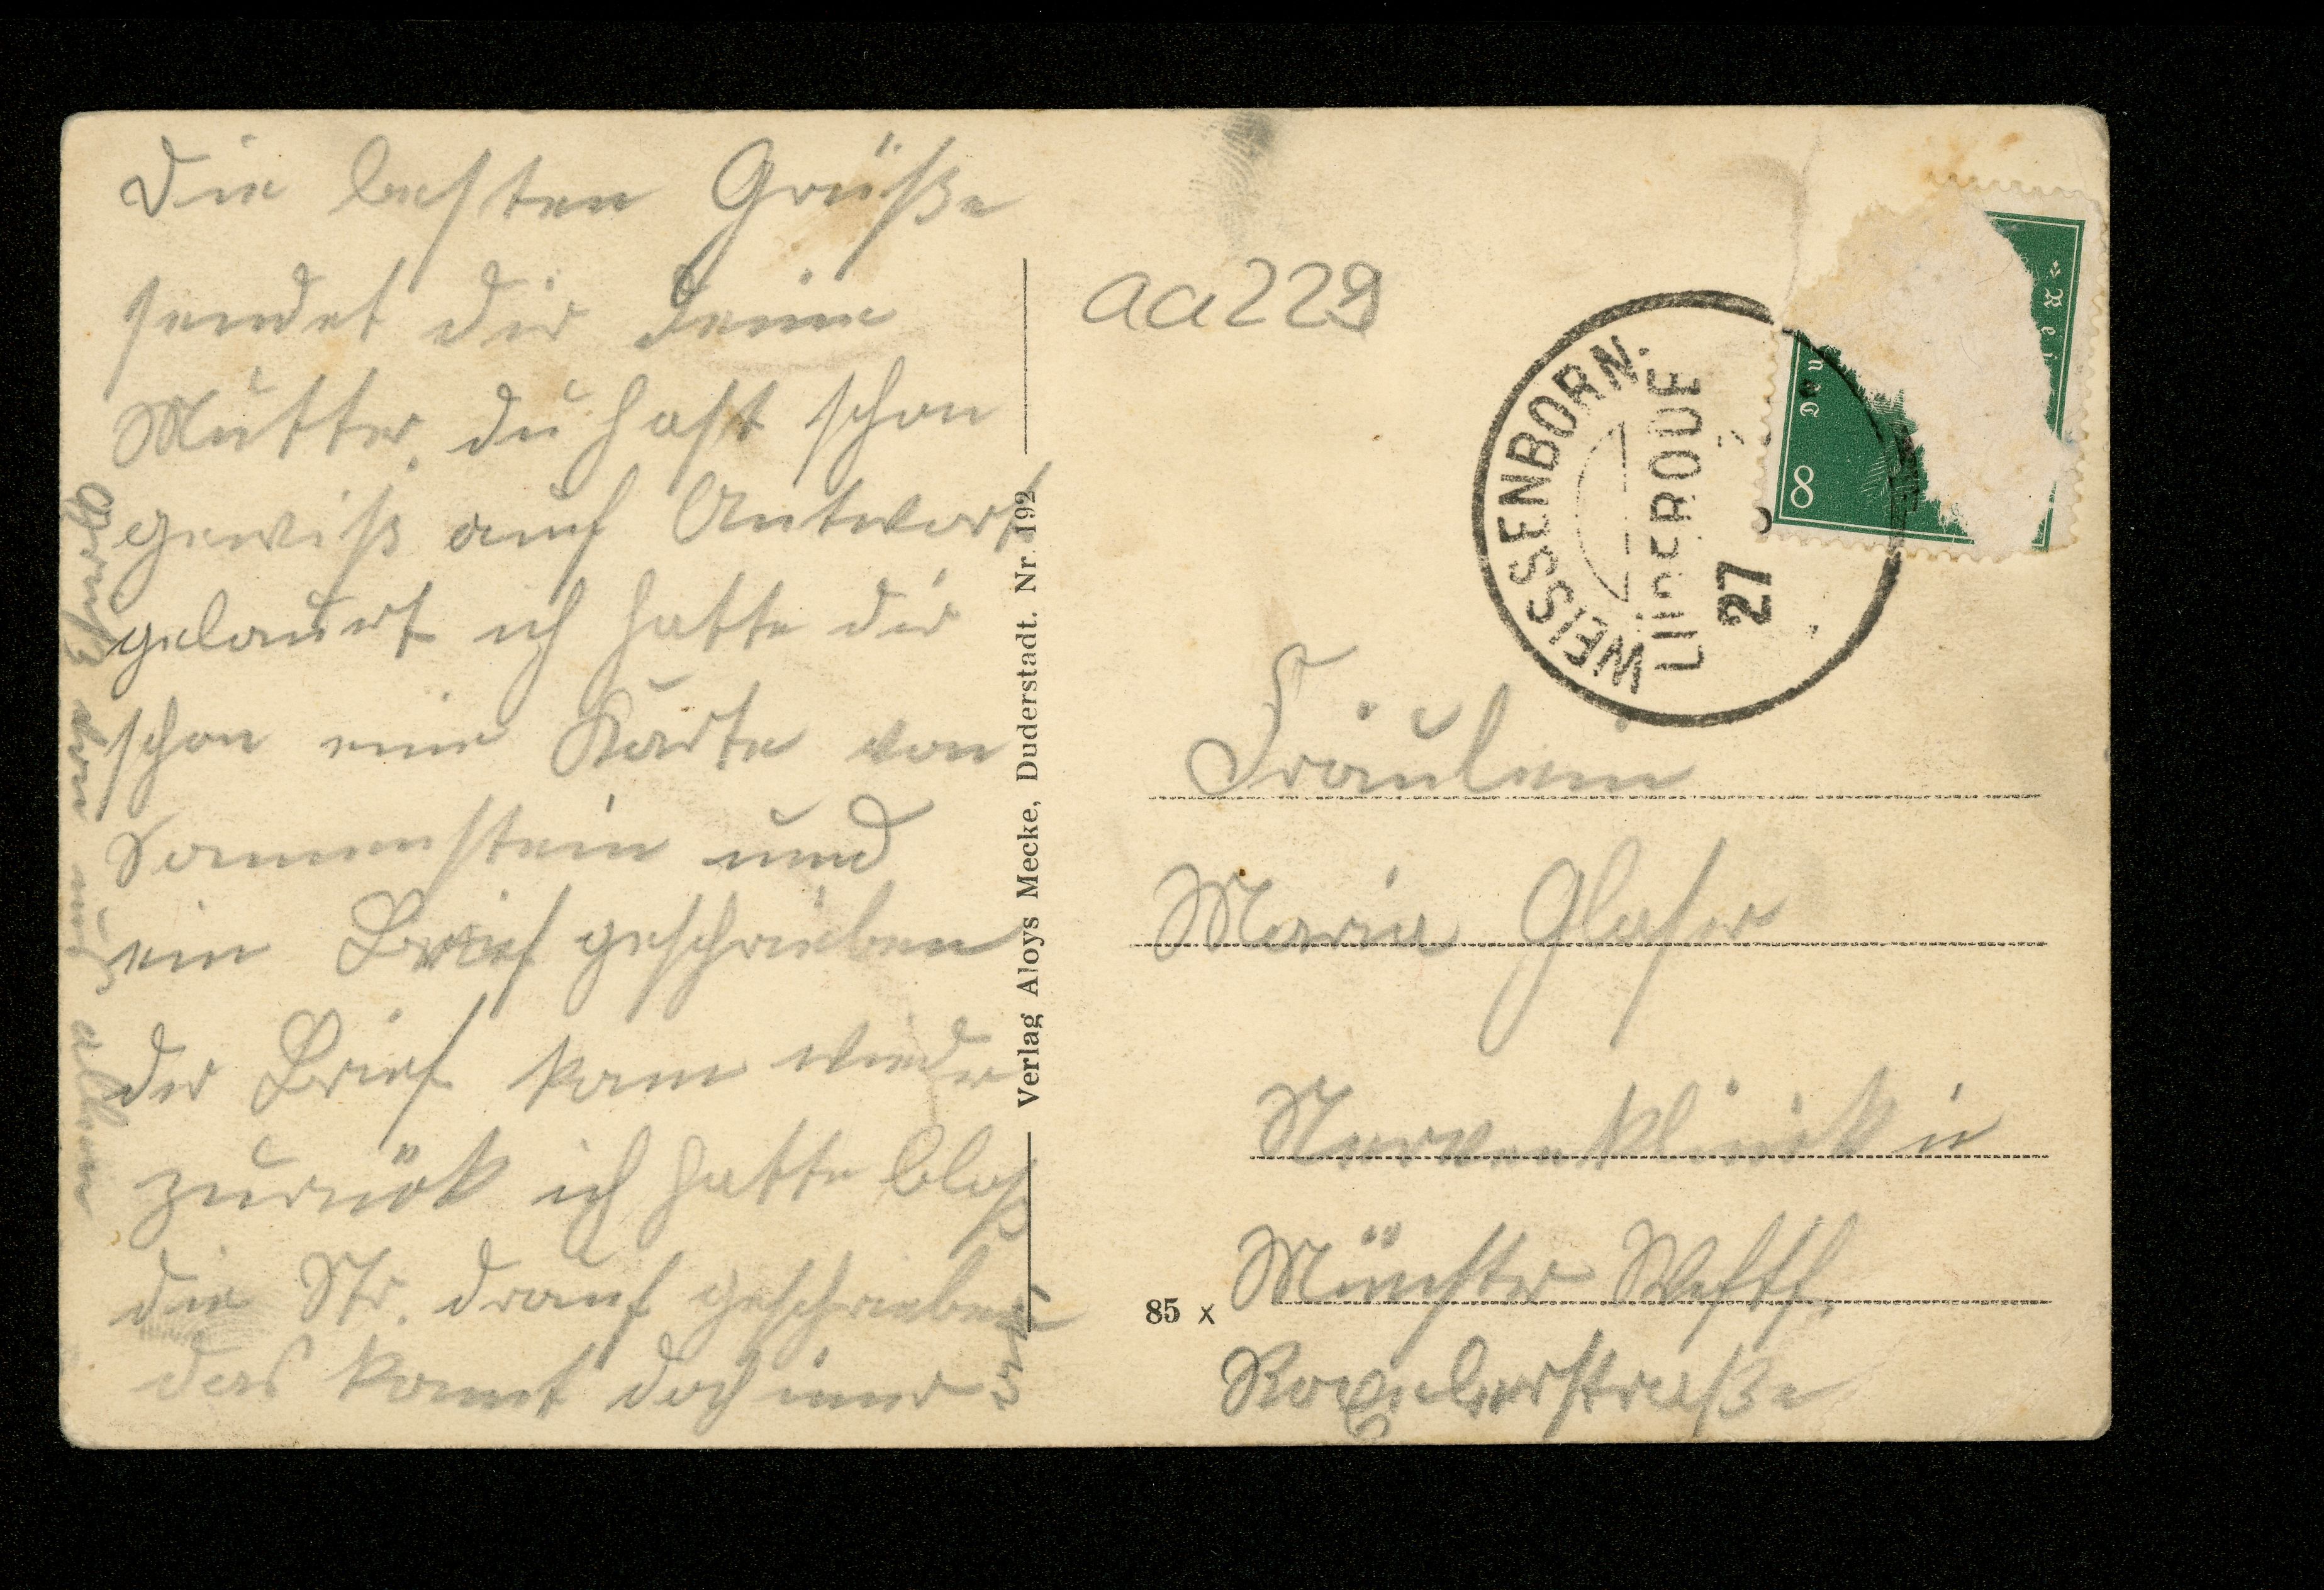 Die besten Grüße
sendet dir deine
Mutter, du hast schon
gewiß auf Antwort
gelauert ich hatte dir
schon eine Karte von
Sonnenstein und
ein Brief geschrieben
der Brief kam wieder
zurück ich hatte bloß
die Str. drauf geschrieben
das kommt doch immer
Gruß von uns allen
Verlag Aloys Mecke, Duderstadt. Nr. 192
aa229
WEISSENBORN-
LÜDERODE
27
8
Fräulein
Maria Glaser
Nervenklinik in
Münster Westf.
85 x